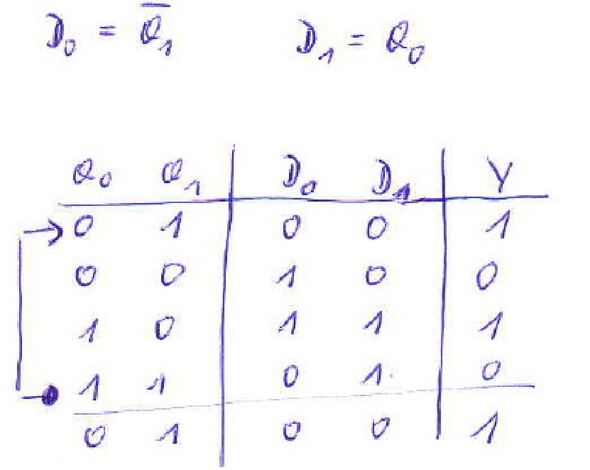 D₀ = Q̅₁ D₁ = Q₀
Q₀ Q₁ D₀ D₁ Y
0 1 0 0 1
0 0 1 0 0
1 0 1 1 1
1 1 0 1 0
0 1 0 0 1